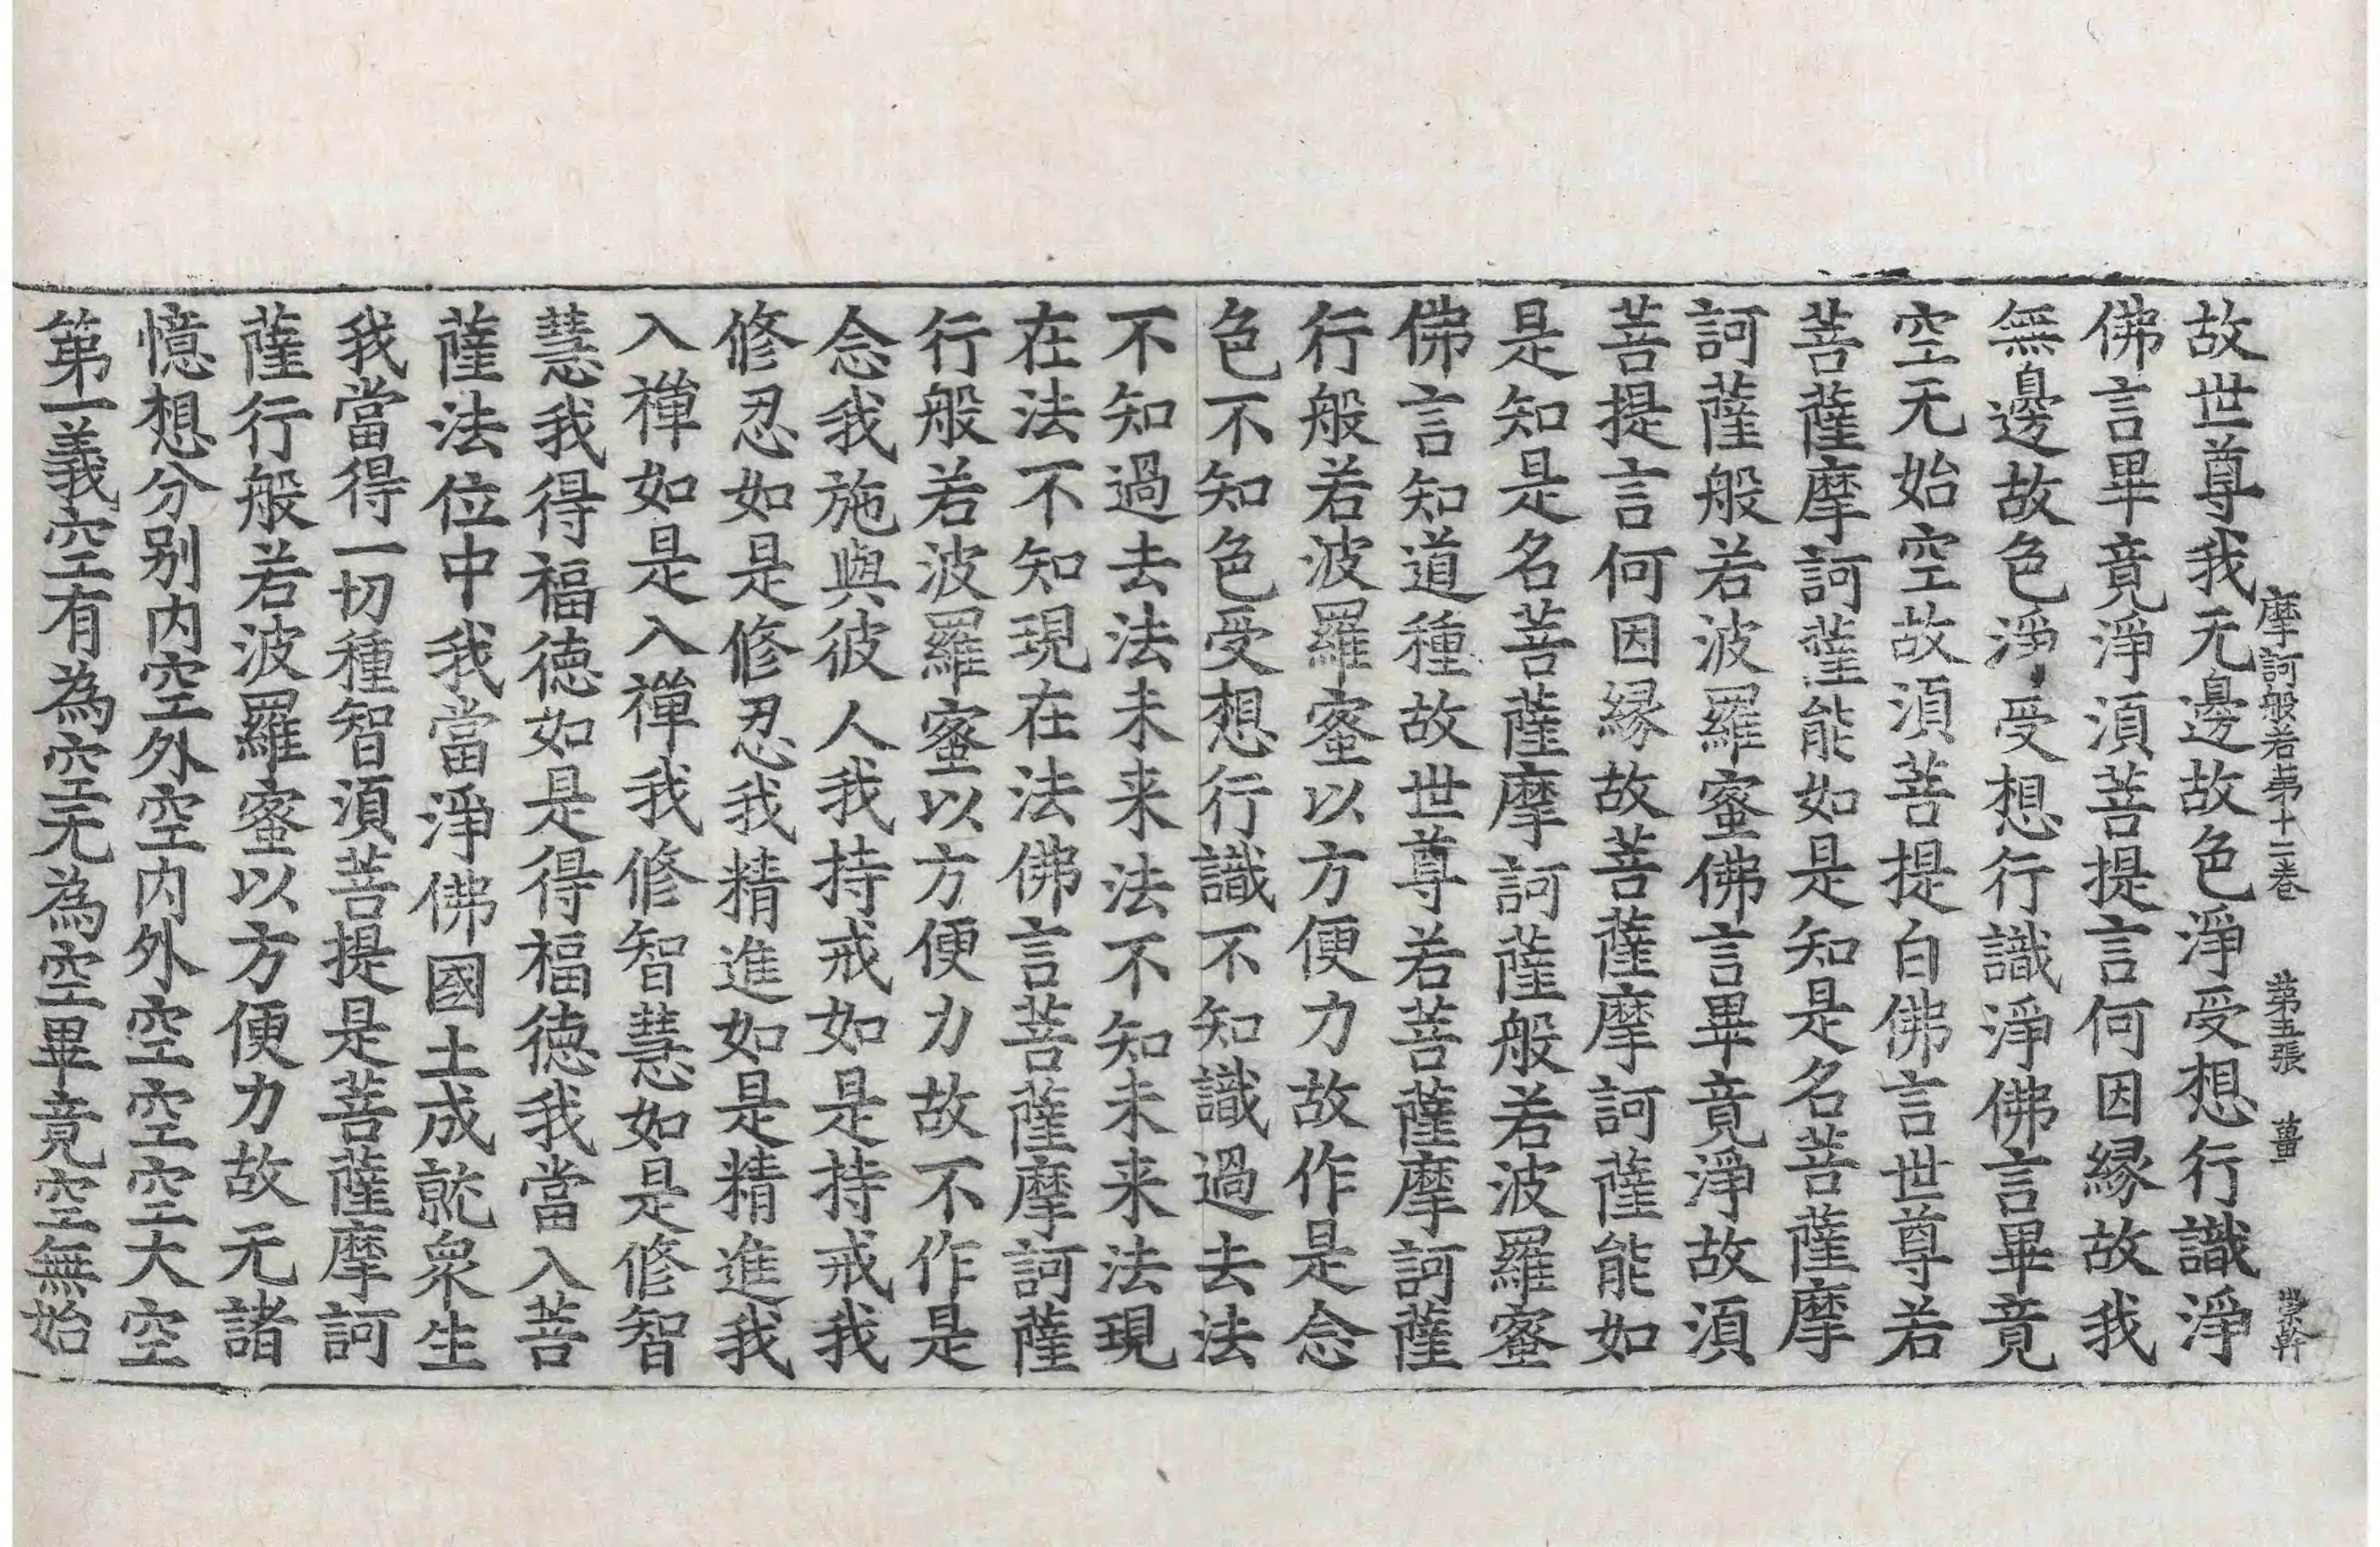 摩訶般若第十二卷 第五張 薑 崇幹
故世尊我无邊故色淨受想行識淨
佛言畢竟淨湏菩提言何因縁故我
無邊故色淨受想行識淨佛言畢竟
空无始空故湏菩提白佛言世尊若
菩薩摩訶薩能如是知是名菩薩摩
訶薩般若波羅蜜佛言畢竟淨故湏
菩提言何因縁故菩薩摩訶薩能如
是知是名菩薩摩訶薩般若波羅蜜
佛言知道種故世尊若菩薩摩訶薩
行般若波羅蜜以方便力故作是念
色不知色受想行識不知識過去法
不知過去法未来法不知未来法現
在法不知現在法佛言菩薩摩訶薩
行般若波羅蜜以方便力故不作是
念我施與彼人我持戒如是持戒我
修忍如是修忍我精進如是精進我
入禪如是入禪我修智慧如是修智
慧我得福德如是得福德我當入菩
薩法位中我當淨佛國土成就衆生
我當得一切種智湏菩提是菩薩摩訶
薩行般若波羅蜜以方便力故无諸
憶想分别内空外空内外空空空大空
第一義空有為空无為空畢竟空無始